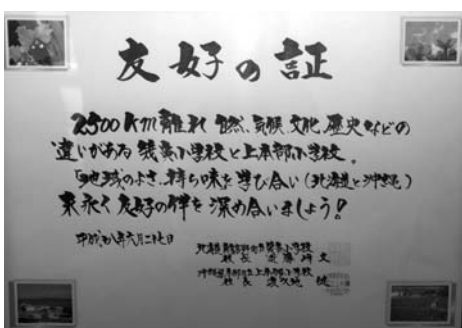 友好の証
2500km離れ 自然、気候、文化、歴史などの
違いがある 幾寅小学校と上本部小学校。
「地域のよさ、持ち味を学び合い(北海道と沖縄)
末永く友好の絆を深め合いましょう!
平成
小学校
校長
上本部小学校
校長